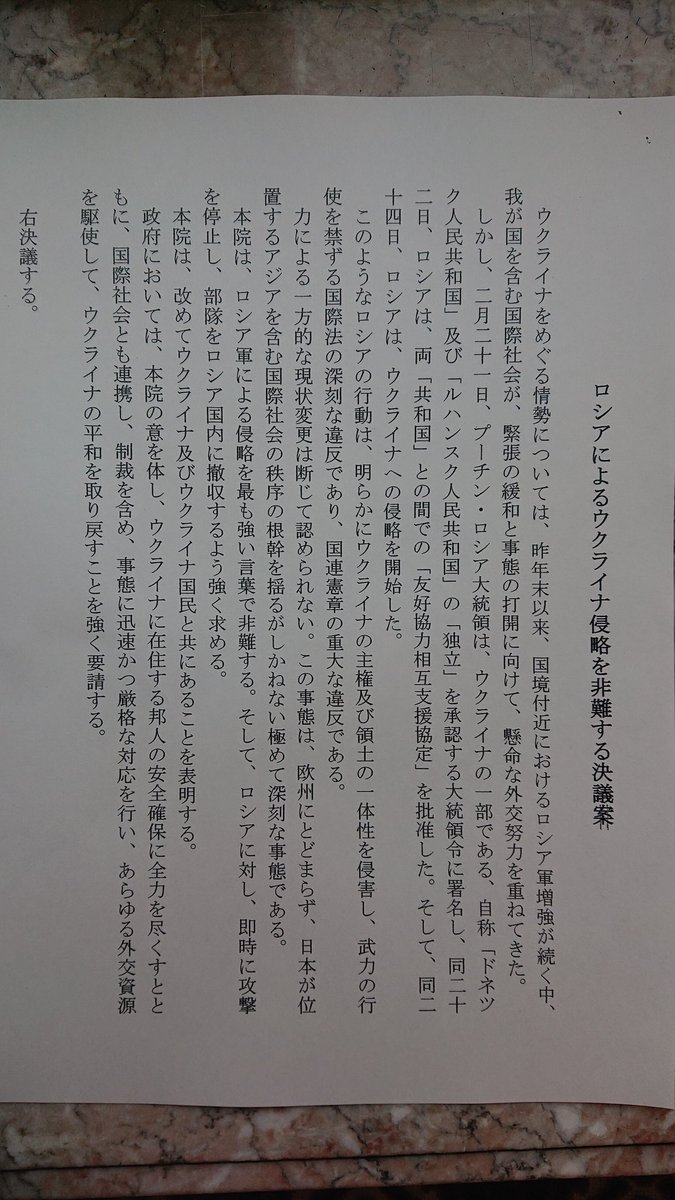 ロシアによるウクライナ侵略を非難する決議案
ウクライナをめぐる情勢については、昨年末以来、国境付近におけるロシア軍増強が続く中、
我が国を含む国際社会が、緊張の緩和と事態の打開に向けて、懸命な外交努力を重ねてきた。
しかし、二月二十一日、プーチン・ロシア大統領は、ウクライナの一部である、自称「ドネツ
ク人民共和国」及び「ルハンスク人民共和国」の「独立」を承認する大統領令に署名し、同二十
二日、ロシアは、両「共和国」との間での「友好協力相互支援協定」を批准した。そして、同二
十四日、ロシアは、ウクライナへの侵略を開始した。
このようなロシアの行動は、明らかにウクライナの主権及び領土の一体性を侵害し、武力の行
使を禁ずる国際法の深刻な違反であり、国連憲章の重大な違反である。
力による一方的な現状変更は断じて認められない。この事態は、欧州にとどまらず、日本が位
置するアジアを含む国際社会の秩序の根幹を揺るがしかねない極めて深刻な事態である。
本院は、ロシア軍による侵略を最も強い言葉で非難する。そして、ロシアに対し、即時に攻撃
を停止し、部隊をロシア国内に撤収するよう強く求める。
本院は、改めてウクライナ及びウクライナ国民と共にあることを表明する。
政府においては、本院の意を体し、ウクライナに在住する邦人の安全確保に全力を尽くすとと
もに、国際社会とも連携し、制裁を含め、事態に迅速かつ厳格な対応を行い、あらゆる外交資源
を駆使して、ウクライナの平和を取り戻すことを強く要請する。
右決議する。